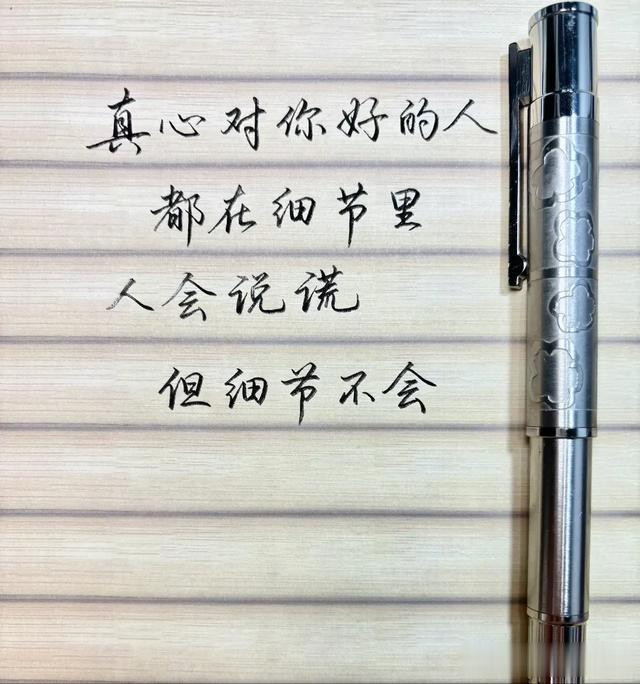 真心对你好的人
都在细节里
人会说谎
但细节不会